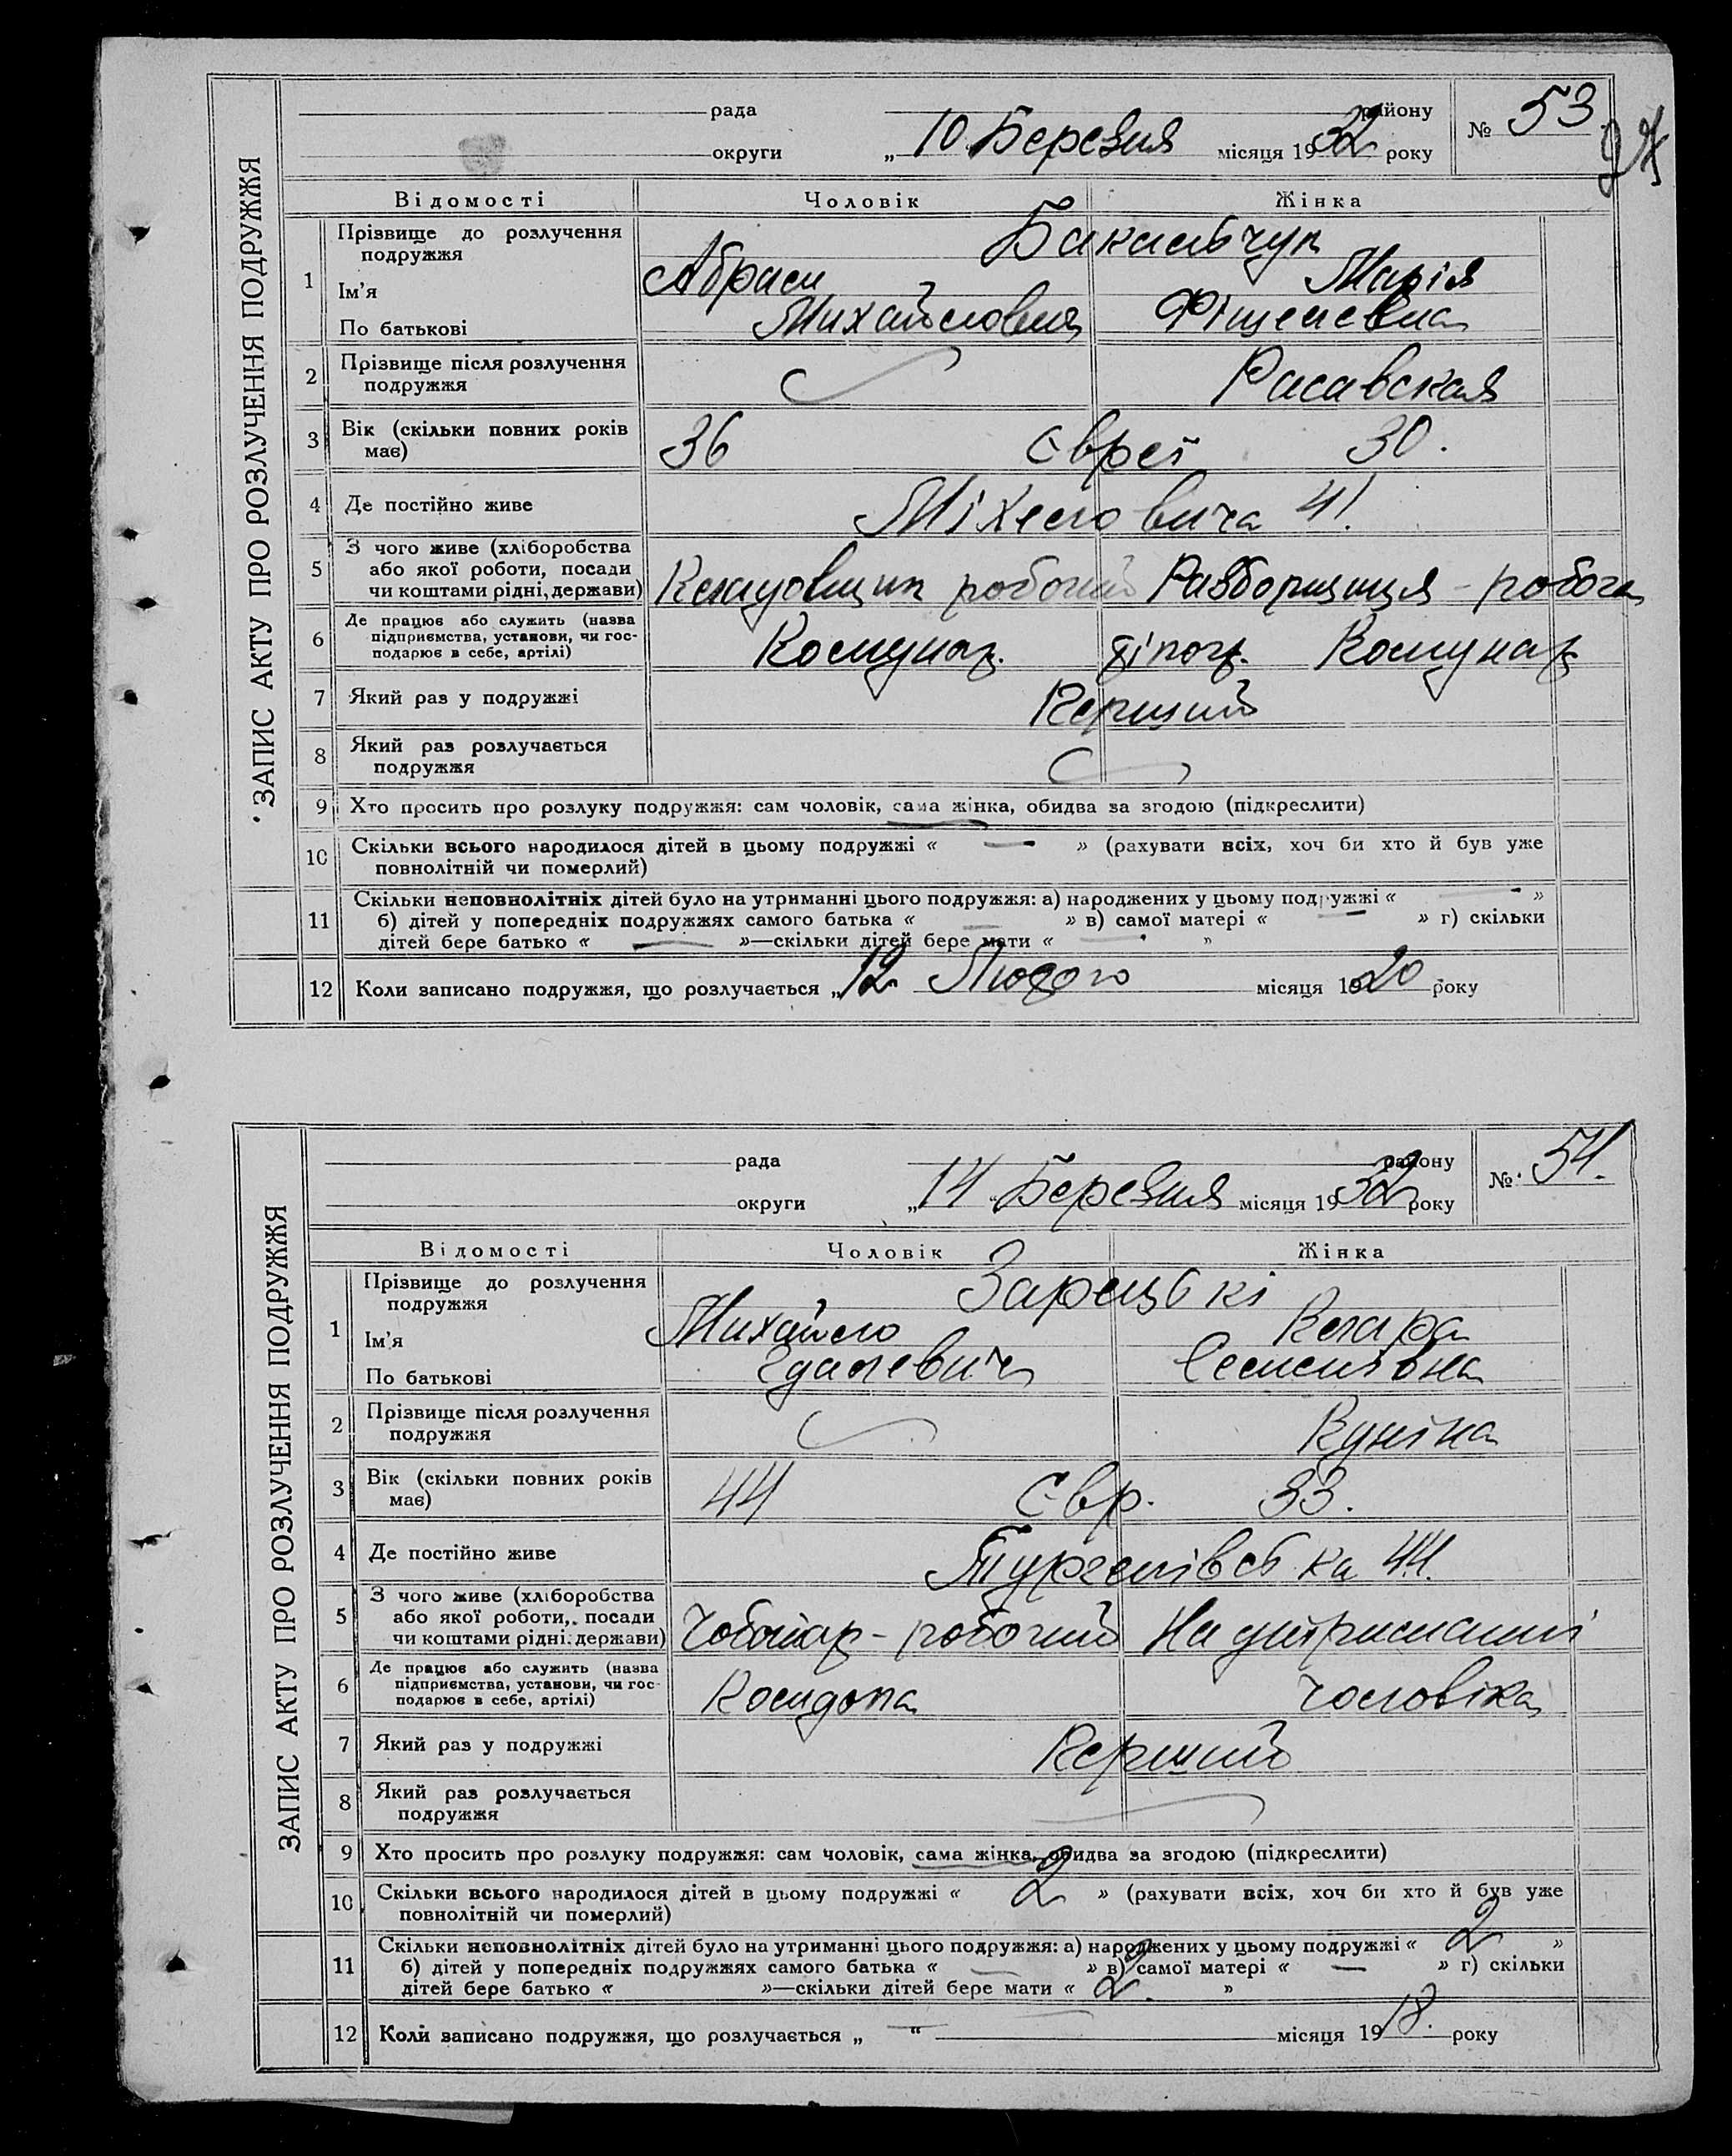 ЗАПИС АКТУ ПРО РОЗЛУЧЕННЯ ПОДРУЖЖЯ
рада района району
округи „ 10 Березня місяця 1932 року
№ 53
Відомості Чоловік Жінка
1 Прізвище до розлучення подружжя Бакальчук
Ім'я Абрам Марія
По батькові Михайлович Фішелевна
2 Прізвище після розлучення
подружжя Расавская
3 Вік (скільки повних років
має) 36 Євреї 30.
4 Де постійно живе Міхеловича 41.
5 З чого живе (хліборобства
або якої роботи, посади
чи коштами рідні, держави) Кладовщик робочий Разборщиця - робоча
6 Де працює або служить (назва
підприємства, установи, чи гос-
подарює в себе, артілі) Комунар. Комунар
7 Який раз у подружжі Перший
8 Який раз розлучається
подружжя
9 Хто просить про розлуку подружжя: сам чоловік, сама жінка, обидва за згодою (підкреслити)
10 Скільки всього народилося дітей в цьому подружжі « — » (рахувати всіх, хоч би хто й був уже
повнолітній чи померлий)
11 Скільки неповнолітніх дітей було на утриманні цього подружжя: а) народжених у цьому подружжі « — »
б) дітей у попередніх подружжях самого батька « — » в) самої матері « — » г) скільки
дітей бере батько « — »—скільки дітей бере мати « — »
12 Коли записано подружжя, що розлучається „ 12 Лютого місяця 1920 року
ЗАПИС АКТУ ПРО РОЗЛУЧЕННЯ ПОДРУЖЖЯ
рада району
округи „ 14 " Березня місяця 1932 року
№ 54.
Відомості Чоловік Жінка
1 Прізвище до розлучення
подружжя Зарецькі
Ім'я Михайло Клара
По батькові Гдалевич Семенівна
2 Прізвище після розлучення
подружжя Куніна
3 Вік (скільки повних років
має) 44 Євр. 33.
4 Де постійно живе Тургенівська 44.
5 З чого живе (хліборобства
або якої роботи, посади
чи коштами рідні, держави) Чоботар - робочий На утриманні
6 Де працює або служить (назва
підприємства, установи, чи гос-
подарює в себе, артілі) чоловіка
7 Який раз у подружжі Перший
8 Який раз розлучається
подружжя
9 Хто просить про розлуку подружжя: сам чоловік, сама жінка, обидва за згодою (підкреслити)
10 Скільки всього народилося дітей в цьому подружжі « 2 » (рахувати всіх, хоч би хто й був уже
повнолітній чи померлий)
11 Скільки неповнолітніх дітей було на утриманні цього подружжя: а) народжених у цьому подружжі « 2 »
б) дітей у попередніх подружжях самого батька « — » в) самої матері « — » г) скільки
дітей бере батько « »—скільки дітей бере мати « 2. »
12 Коли записано подружжя, що розлучається „ — " місяця 1918. року